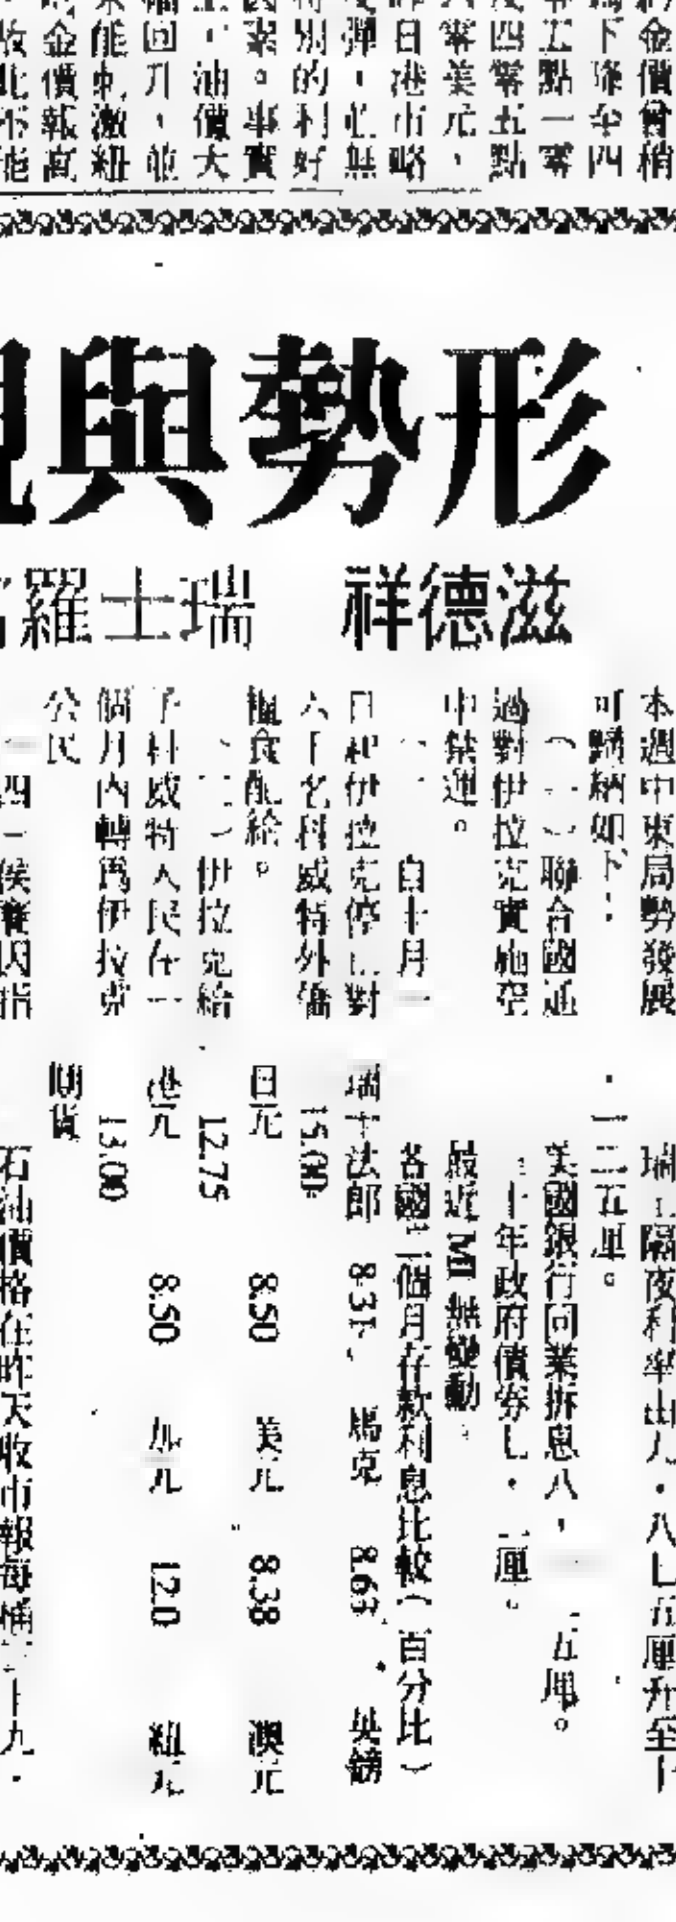 金價曾稍
下降至四
五點一零
四零五點
零美元，
昨日港市略
彈，並無
特別的利好
因素。事實
，油價大
幅回升，並
未能刺激紐
金價報高
收北不能
形勢與
滋德祥　瑞士羅
本週中東局勢發展
可歸納如下：
（一）聯合國通
過對伊拉克實施空
中禁運。
自十月一
日起伊拉克停止對
六千名科威特外僑
糧食配給。
（三）伊拉克給
予科威特人民在一
個月內轉爲伊拉克
公民
四 侯賽因指
瑞士隔夜利率由九・八七五厘升至十
・一二五厘。
美國銀行同業拆息八・ 五厘。
三十年政府債券 ・ 厘。
最近 M1 無變動。
各國三個月存款利息比較（百分比）
瑞士法郎 8.31 馬克 8.63 英鎊
15.00
日元 8.50 美元 8.38 澳元
12.75
港元 8.50 加元 12.0 紐元
13.00
期貨
石油價格在昨天收市報每桶三十九・